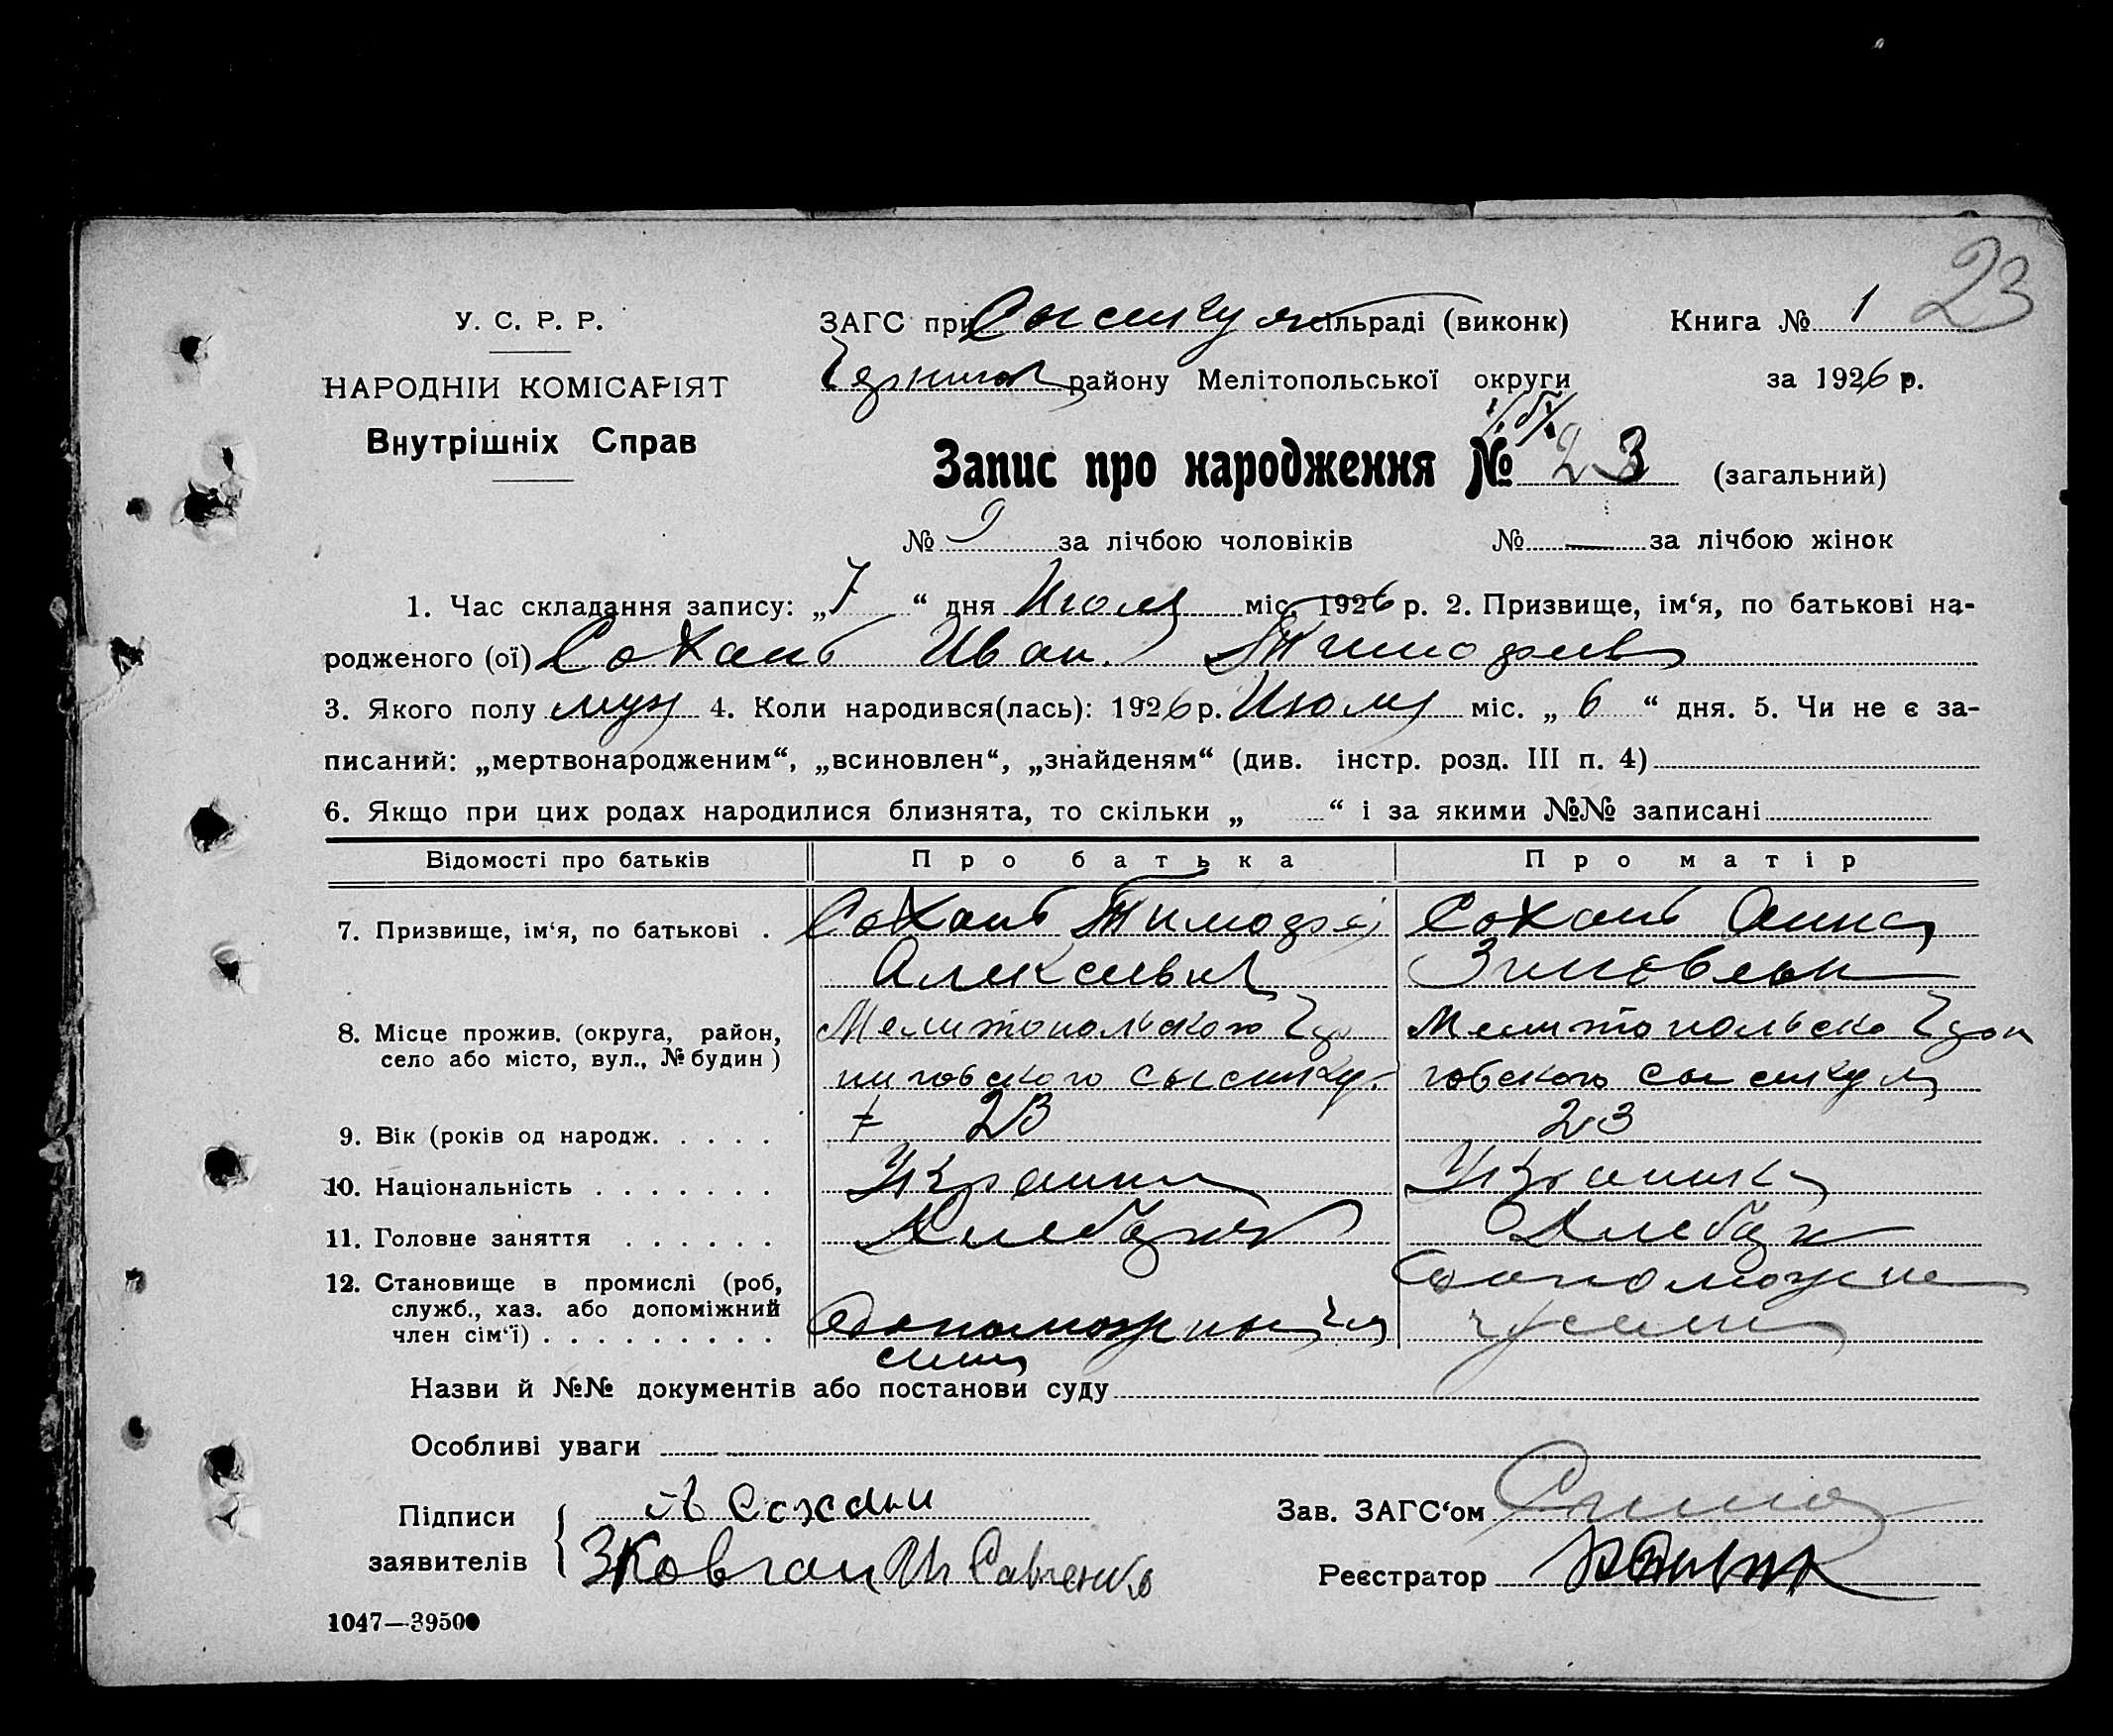 23
У. С. Р. Р.
ЗАГС при Сысикуля сільраді (виконк) Книга № 1
НАРОДНІИ КОМІСАРІЯТ
району Мелітопольської округи за 1926 р.
Внутрішніх Справ
Запис про народження № 23 (загальний)
№ 9 за лічбою чоловіків № — за лічбою жінок
1. Час складання запису: „7“ дня Июля міс. 1926 р. 2. Призвище, ім‘я, по батькові на-
родженого (ої) Сохань Иван Тимофеев
3. Якого полу муж 4. Коли народився(лась): 1926 р. Июля міс. „ 6 “ дня. 5. Чи не є за-
писаний: „мертвонародженим“, „всиновлен“, „знайденям“ (див. інстр. розд. III п. 4)
6. Якщо при цих родах народилися близнята, то скільки „ “ і за якими №№ записані
Відомості про батьків Про батька Про матір
7. Призвище, ім‘я, по батькові . Сохань Тимофей Сохань Анна
Алексеевич Зиновьевн
8. Місце прожив. (округа, район, Мелитопольского Мелитопольско
село або місто, вул., № будин ) ниговского Сысику. говского Сысикуля
9. Вік (років од народж. . . . . 23 23
10. Національність . . . . . . . Украин Украинка
11. Головне заняття . . . . . . Хлебороб Хлебор
12. Становище в промислі (роб,
служб., хаз. або допоміжний
член сім‘ї) . . . . . . . . .
Назви й №№ документів або постанови суду
Особливі уваги
Підписи Зав. ЗАГС‘ом
заявителів { З Ковган И Савченко Реєстратор
1047—39500